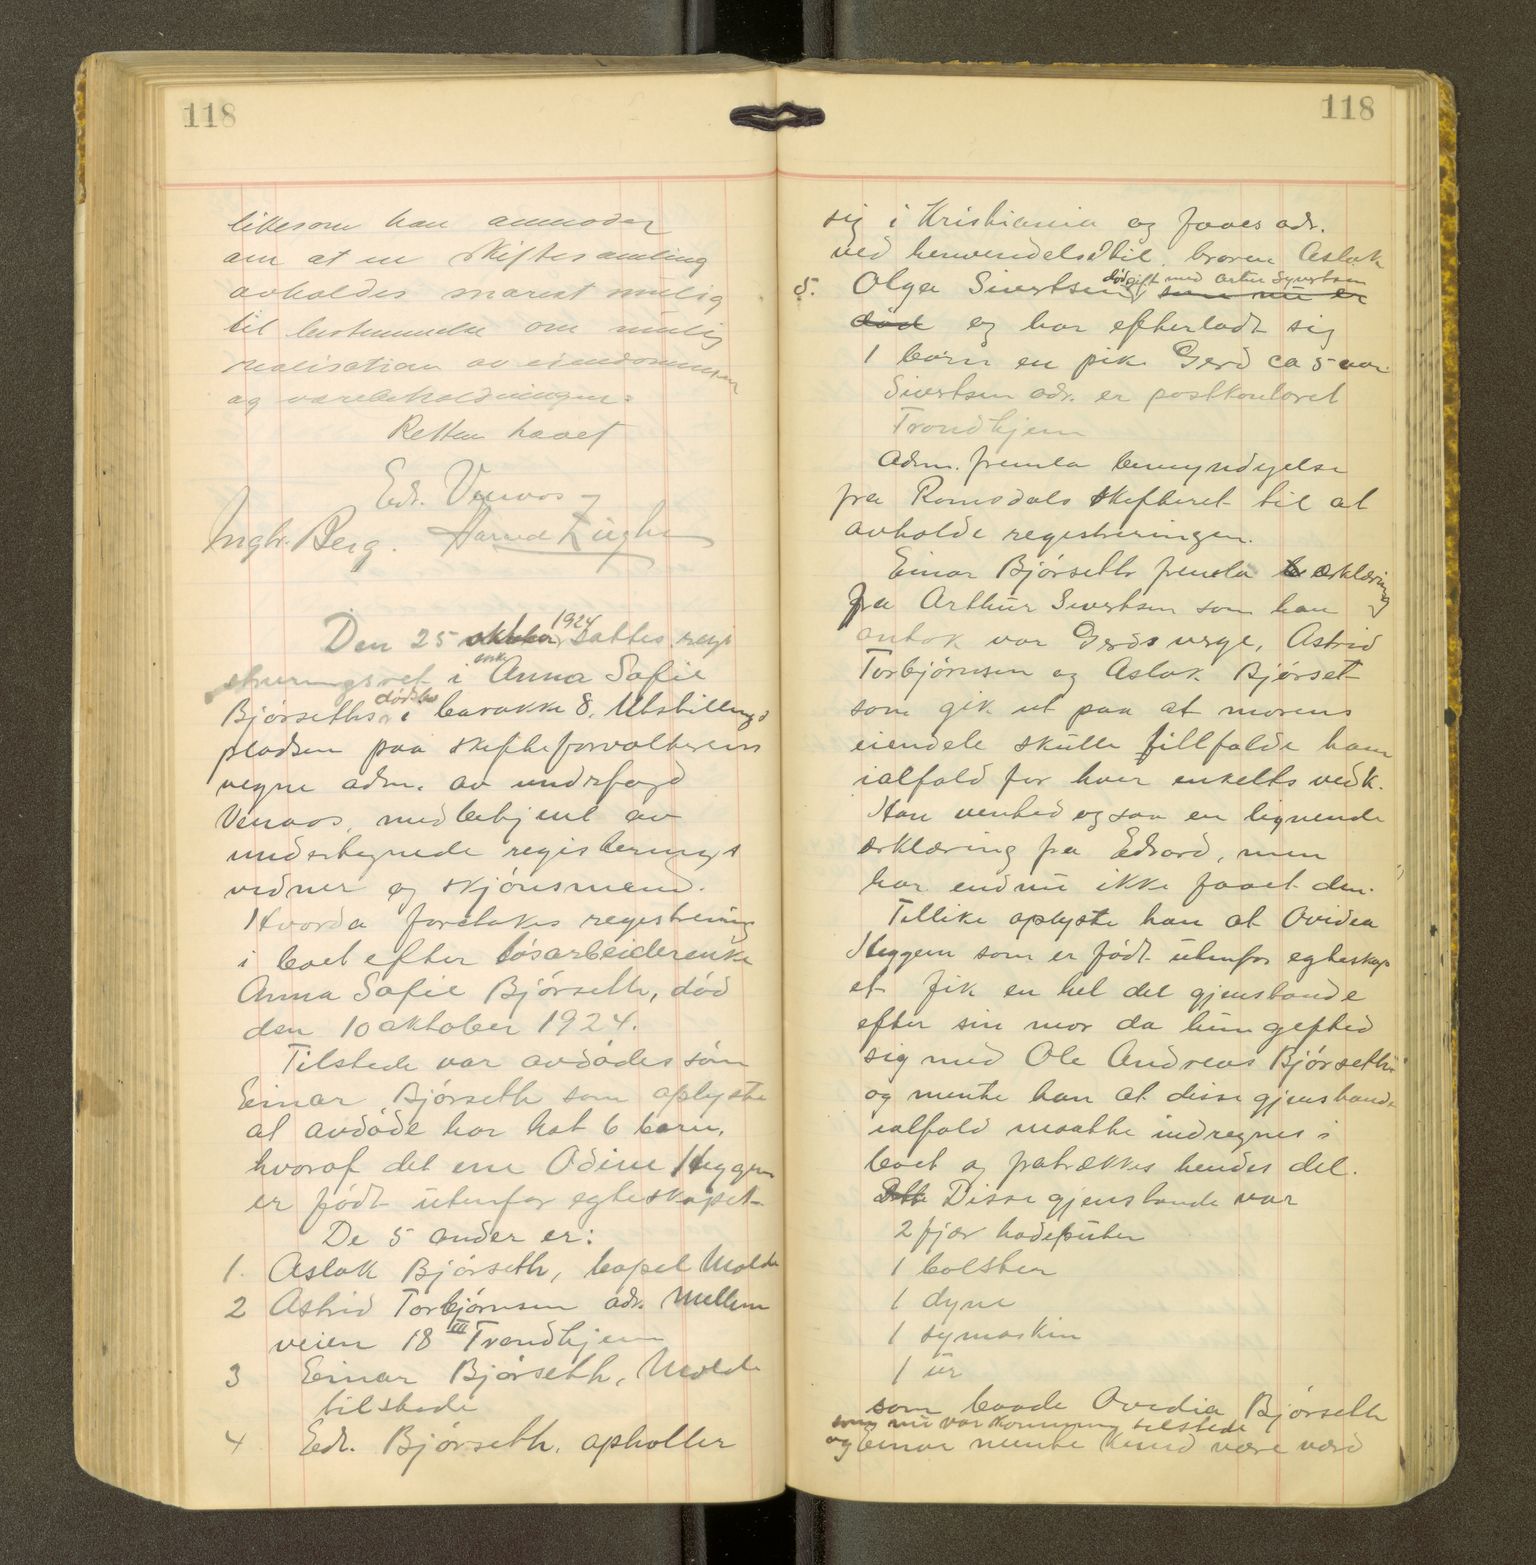 118
likesom han anmoder
om at en skiftesamling
avholdes snarest mulig
til bestemmelse om mulig
realisation av eiendommen
og varebeholdningen.
Retten hævet
Edv. Venaas
Ingbr. Berg.
Den 25 oktober 1924 sattes regi
streringsret i enke Anna Sofie
Bjørseths dødsbo i barakke 8, Utstillings
pladsen paa skifteforvalterens
vegne adm. av undrfogd
Venaas, med bihjelp av
undertegnede registerings
vidner og skjønsmend.
Hvorda foretokes registrering
i boet efter løsarbeiderenke
Anna Sofie Bjørseth, død
den 10 oktober 1924.
Tilstede var avdødes søn
Einar Bjørseth som oplyste
at avdøde har hat 6 barn,
hvoraf det ene Odine Heggem
er født utenfor egteskapet.
De 5 ander er:
1. Aslak Bjørseth, Molde
2 Astrid Torbjørnsen adr. Mellem
veien 18 III Trondhjem
3 Einar Bjørseth, Molde
tilstede
4 Edv. Bjørseth, opholder
118
sig i Kristiania og faaes adr.
ved henvendelse til broren Aslak
5. Olga Sivertsen død gift med Artur Syvertsen som nu er
død og har efterladt sig
1 barn en pike Gerd ca 5 aar.
Sivertsen adr. er postkontoret
Trondhjem
Adm. fremla bemyndigelse
fra Romsdals skifteret til at
avholde registreringen.
Einar Bjørseth fremla erklæring
fra Arthur Sivertsen som han
antok var Gerds verge, Astrid
Torbjørnsen og Aslak Bjørset
som gik ut paa at morens
eiendele skulle tillfalde ham
ialfald for hver enkelts vedk.
Han ventet ogsaa en lignende
erklæring fra Edvard, men
har endnu ikke faaet den.
Tillike oplyste han at Ovidea
Heggem som er født utenfor egteskap
et fik en hel del gjenstande
efter sin mor da hun giftet
sig med Ole Andreas Bjørseth
og mente han at disse gjenstande
ialfald maatte indregnes i
boet og fratrækkes hendes del.
Disse gjenstande var
2 fjær hodeputer
1 bolster
1 dyne
1 symaskin
1 ur
som baade Ovedia Bjørseth
som nu var kommen tilstede
og Einar mente kunde være værd